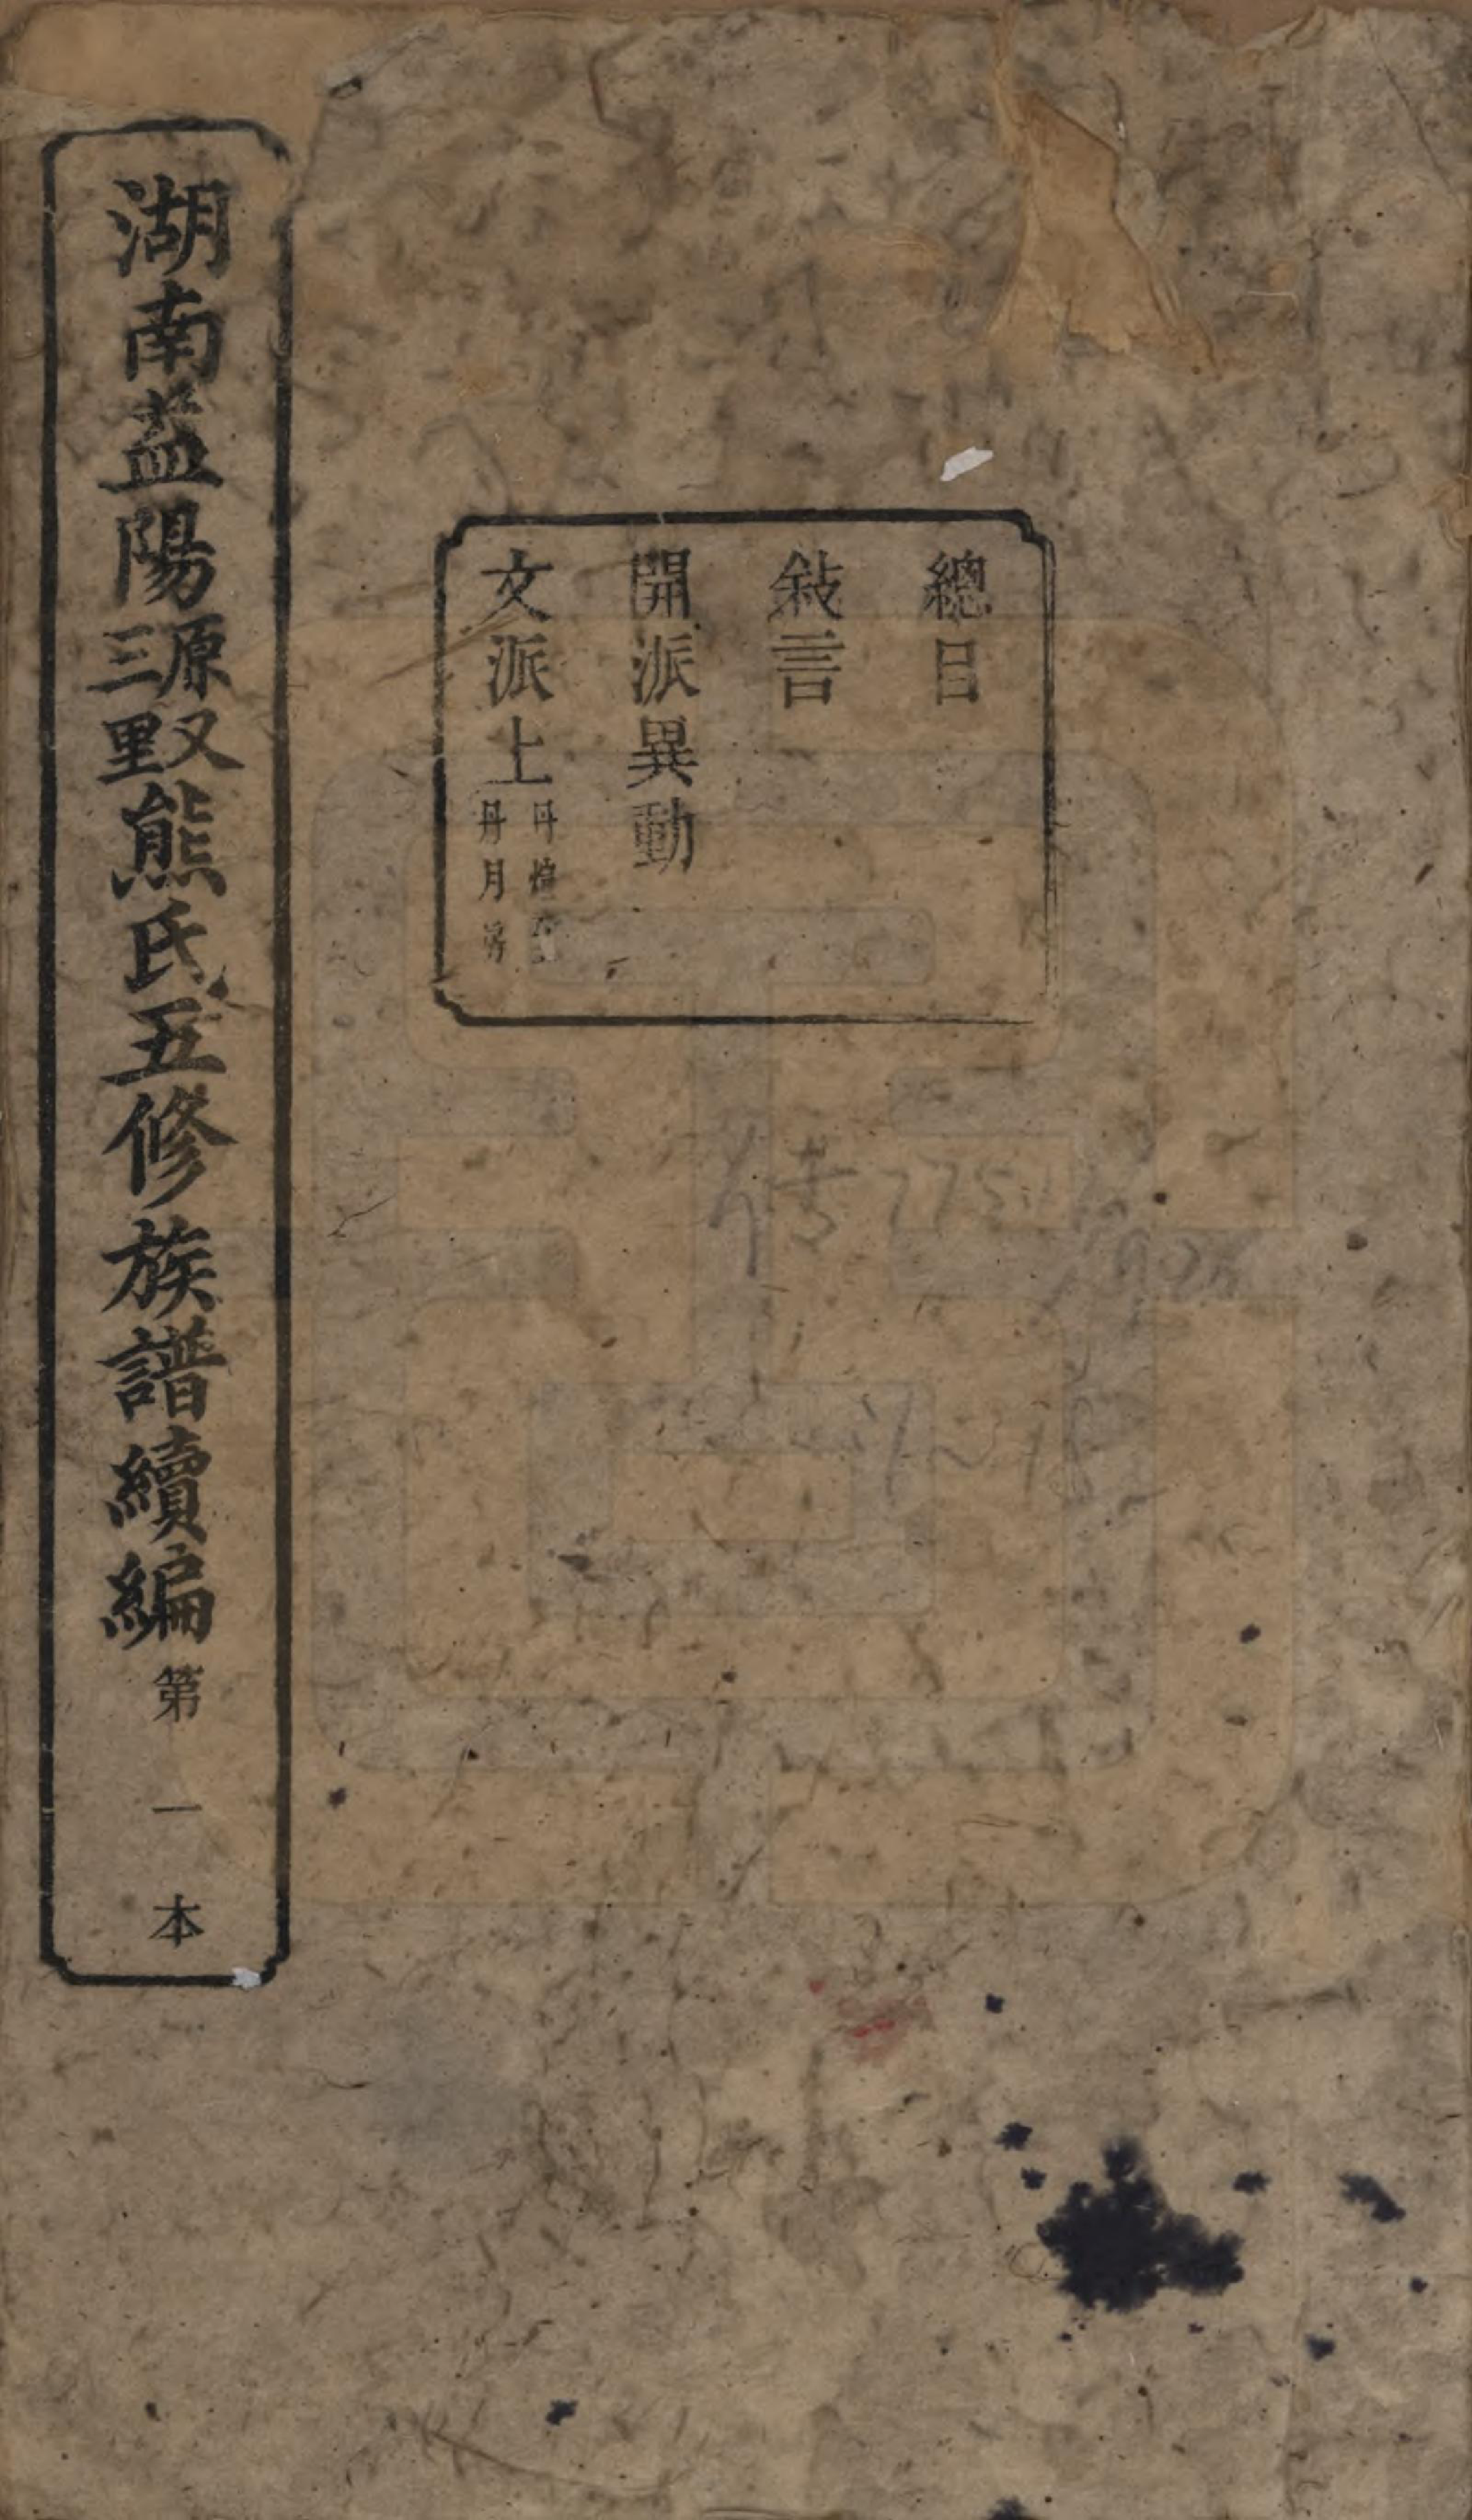 總目
敍言
開派異動
文派上
丹
丹月房
湖南益陽
原又
三里
熊氏五修族譜續編
第一本